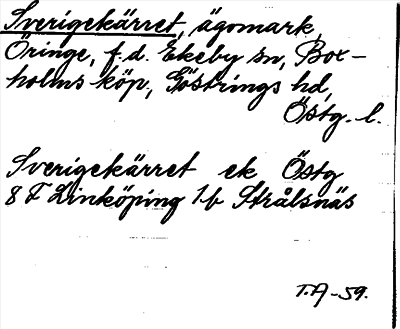 Sverigekärret, ägomark,
Öringe, f.d. Ekeby sn, Box-
holms köp., Göstrings hd,
Östg. l.
Sverigekärret ek Östg
8 F Linköping 1b Strålsnäs
T.A-59.